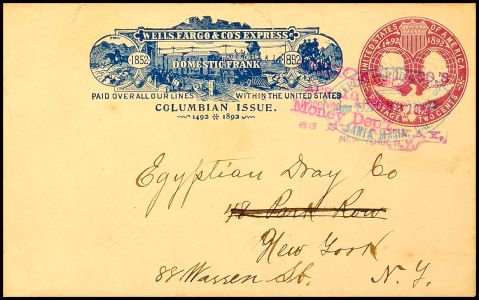 WELLS FARGO & CO'S EXPRESS
1852 1892
DOMESTIC FRANK
PAID OVER ALL OUR LINES WITHIN THE UNITED STATES
COLUMBIAN ISSUE.
1492 1892
UNITED STATES OF AMERICA
1492 1892
POSTAGE TWO CENTS
Money Dept
SANTA MARIA
Egyptian Drag Co
42 Park Row
New York
88 Warren St. N. Y.